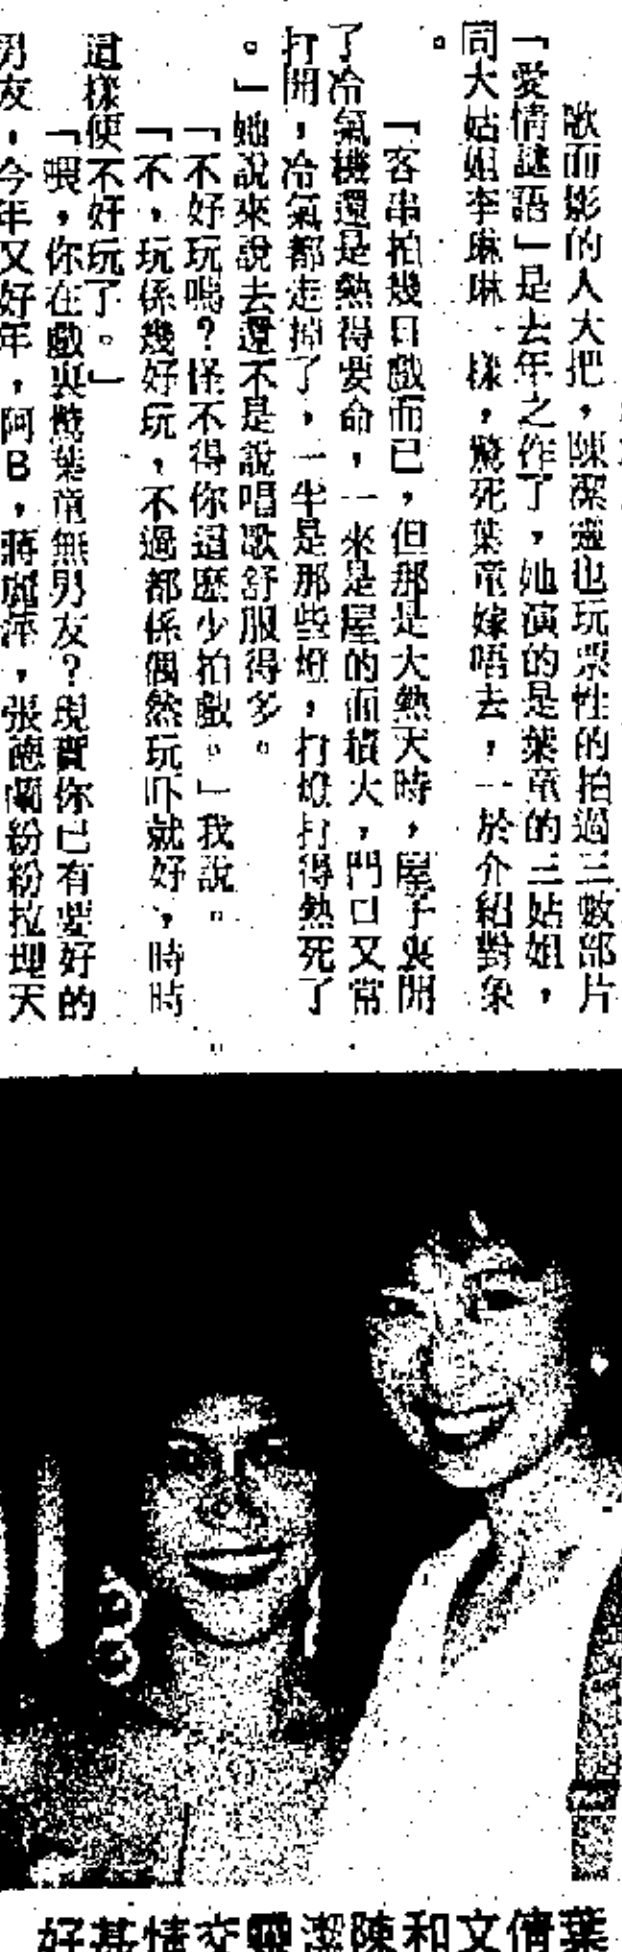 歌而影的人大把，陳潔靈也玩票性的拍過三數部片
「愛情謎語」是去年之作了，她演的是葉童的三姑姐，
同大姑姐李琳琳一樣，驚死葉童嫁唔去，一於介紹對象
。
「客串拍幾日戲而已，但那是大熱天時，屋子裏開
了冷氣機還是熱得要命，一來是屋的面積大，門口又常
打開，冷氣都走掉了，一半是那些燈，打燈打得熱死了
。」她說來說去還不是說唱歌舒服得多。
「不好玩嗎？怪不得你這麽少拍戲。」我說。
「不，玩係幾好玩，不過都係偶然玩吓就好，時時
這樣便不好玩了。」
「喂，你在戲裏驚葉童無男友？現實你已有要好的
男友，今年又好年，阿B，蔣麗萍，張德蘭紛紛拉埋天
葉倩文和陳潔靈交情甚好